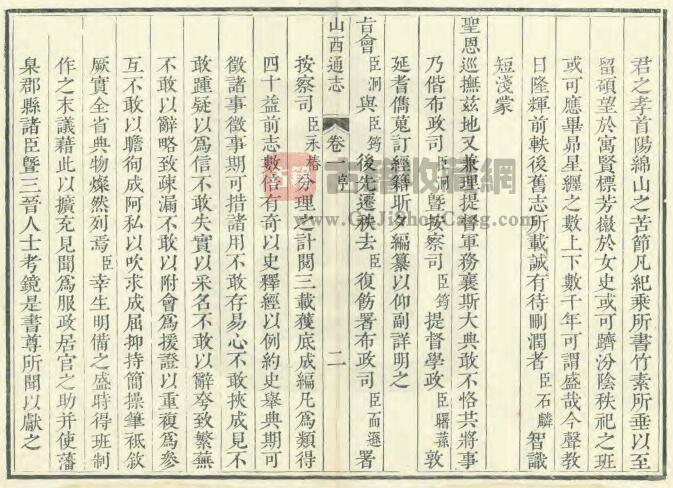 君之孝首陽綿山之苦節凡紀乘所書竹素所垂以至
留碩望於寓賢標芳嶽於女史或可躋汾陰秩祀之班
或可應畢昴星纏之數上下數千年可謂盛哉今聲教
日隆輝前軼後舊志所載誠有待刪潤者臣石麟智識
短淺蒙
聖恩巡撫茲地又兼理提督軍務襄斯大典敢不恪共將事
乃偕布政司臣泂暨按察司臣筠提督學政臣曙蓀敦
延耆儁蒐訂經籍昕夕編纂以仰副詳明之
旨會臣泂與臣筠後先遷秩去復飭署布政司臣而遜署
山西通志 卷一 序 二
按察司臣永椿分理之計閱三載獲底成編凡為類得
四十益前志數倍有奇以史釋經以例約史舉典期可
徵諸事徵事期可措諸用不敢存易心不敢挾成見不
敢踵疑以為信不敢失實以采名不敢以辭夸致繁蕪
不敢以辭略致疎漏不敢以附會為援證以重複為參
互不敢以瞻徇成阿私以吹求成屈抑持簡操筆祗敘
厥實全省典物燦然列焉臣幸生明備之盛時得班制
作之末議藉此以擴充見聞為服政居官之助并使藩
臬郡縣諸臣暨三晉人士考鏡是書尊所聞以獻之
古籍收藏網
www.GuJiShouCang.com